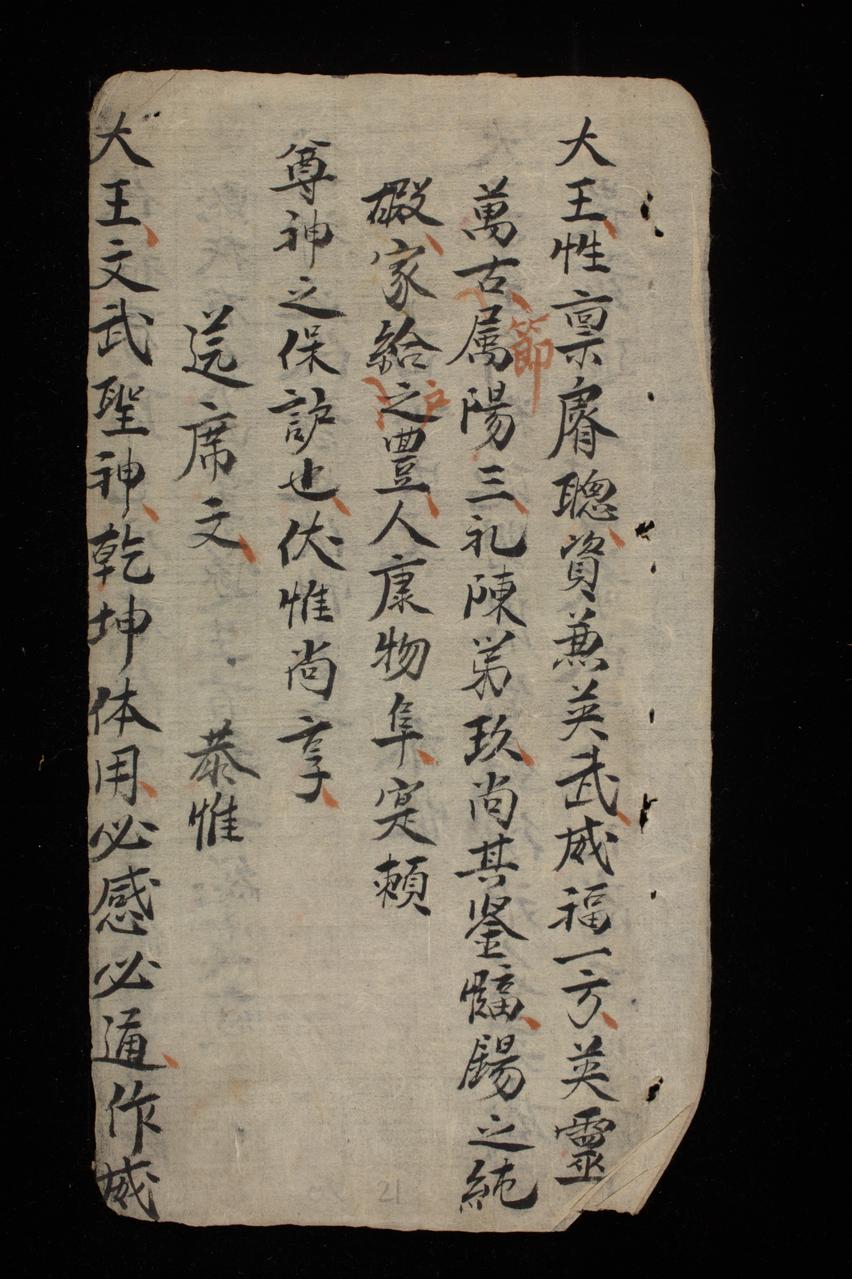 大王性禀睿聰資兼英武威福一方英靈
萬古節属陽三礼陳第玖尚其鉴愊錫之純
嘏家給户之豊人康物阜寔頼
尊神之保護也伏惟尚享
送席文 恭惟
大王文武聖神乾坤体用必感必通作威